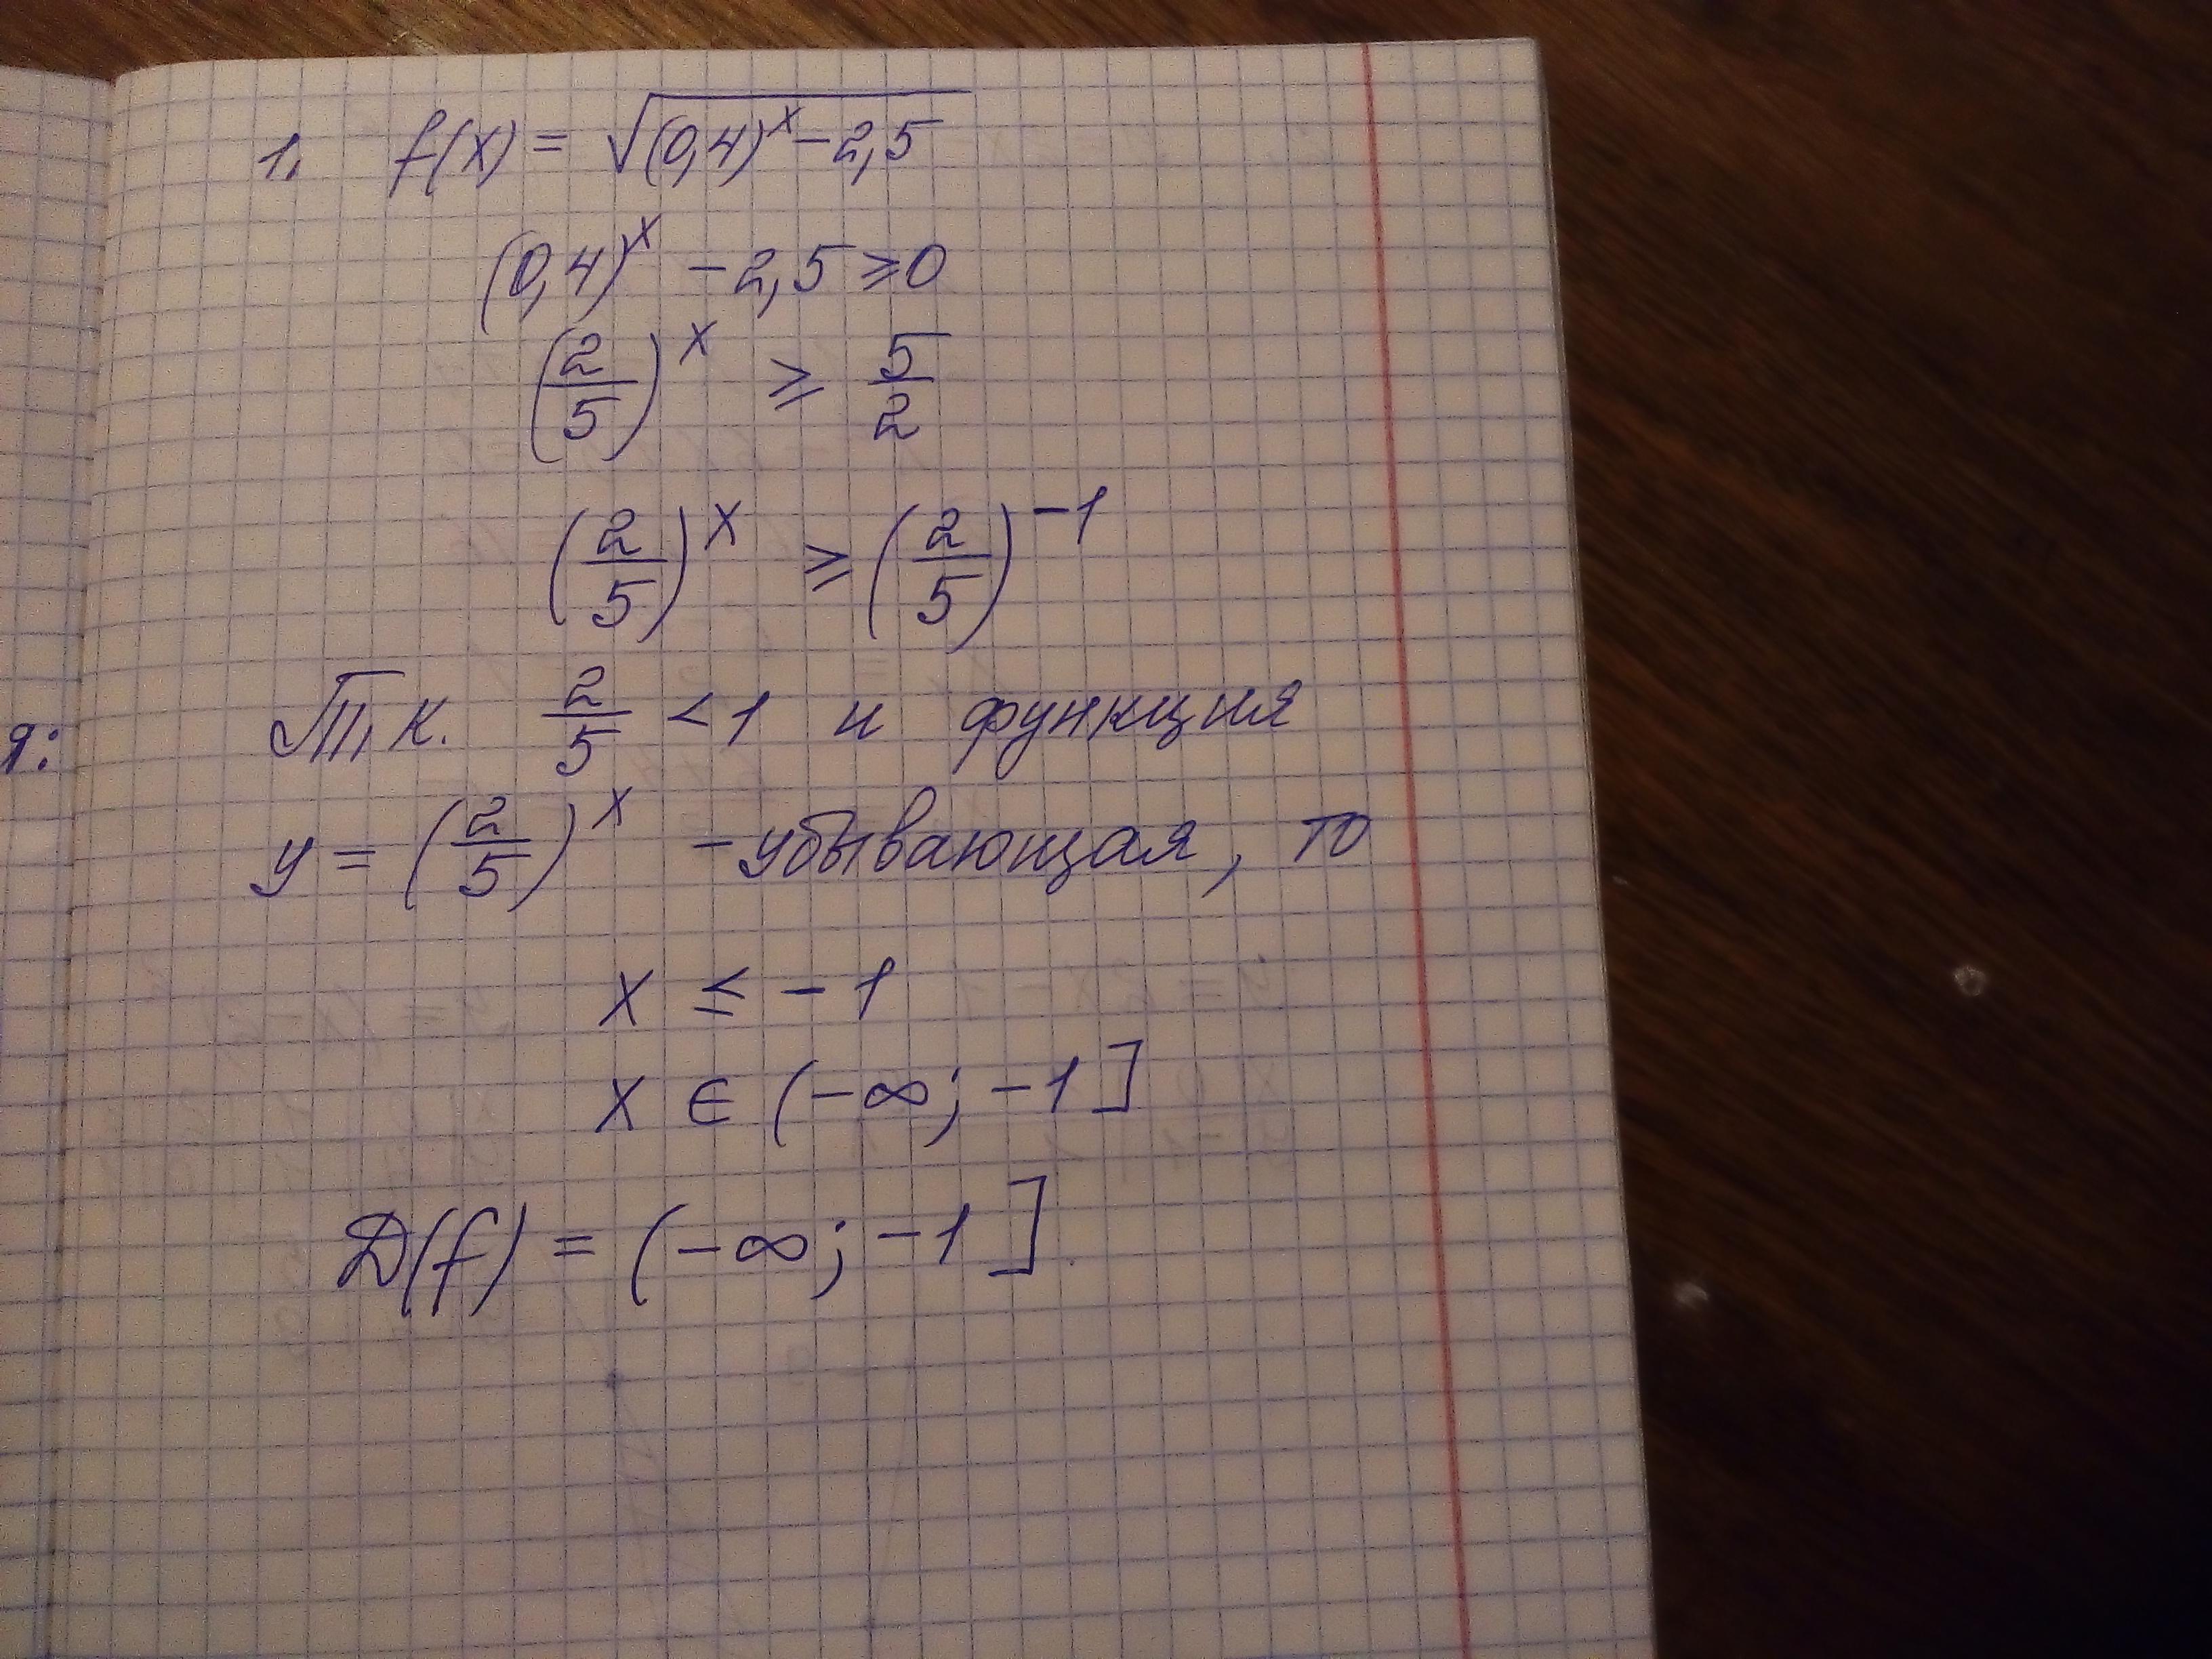 1. f(x) = √((0,4)^x − 2,5)
(0,4)^x − 2,5 ⩾ 0
(2/5)^x ⩾ 5/2
(2/5)^x ⩾ (2/5)^−1
Т.к. 2/5 < 1 и функция
я:
y = (2/5)^x - убывающая, то
x ≤ −1
x ∈ (−∞; −1]
D(f) = (−∞; −1].